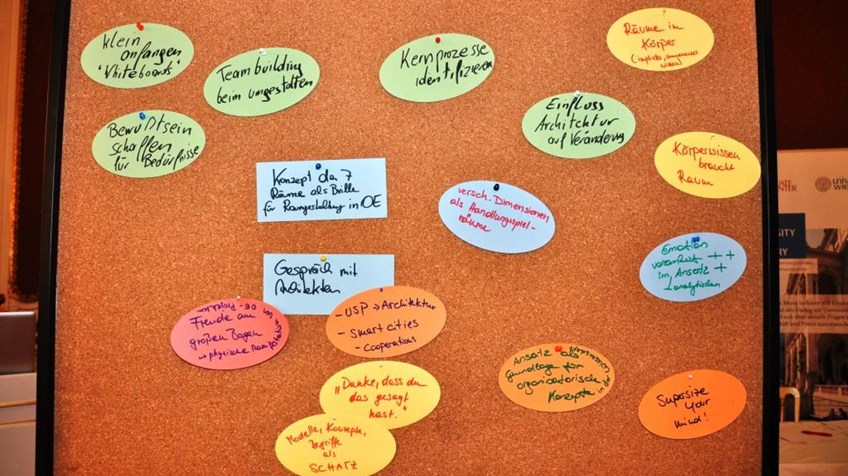 klein
anfangen
"Whiteboards"
Teambuilding
beim umgestalten
Kernprozesse
identifizieren
Räume im
Körper
(implizites,
wissen)
Bewußtsein
schaffen
für Bedürfnisse
Einfluss
Architektur
auf Veränderung
Körperwissen
braucht
Raum
Konzept der 7
Räume als Brille
für Raumgestaltung in OE
versch. Dimensionen
als Handlungsspiel-
räume
Emotion
verankert ++
im Ansatz +
analytischen
Gespräch mit
Architekten
Freude am
großen Bogen
→ physische
- USP → Architektur
- Smart cities
- Cooperations
Ansatz als
Grundlage für
organisatorische
Konzepte
"Danke, dass du
das gesagt
hast."
Supersize
your
mind!
Modelle, Konzepte,
Begriffe
als
SCHATZ